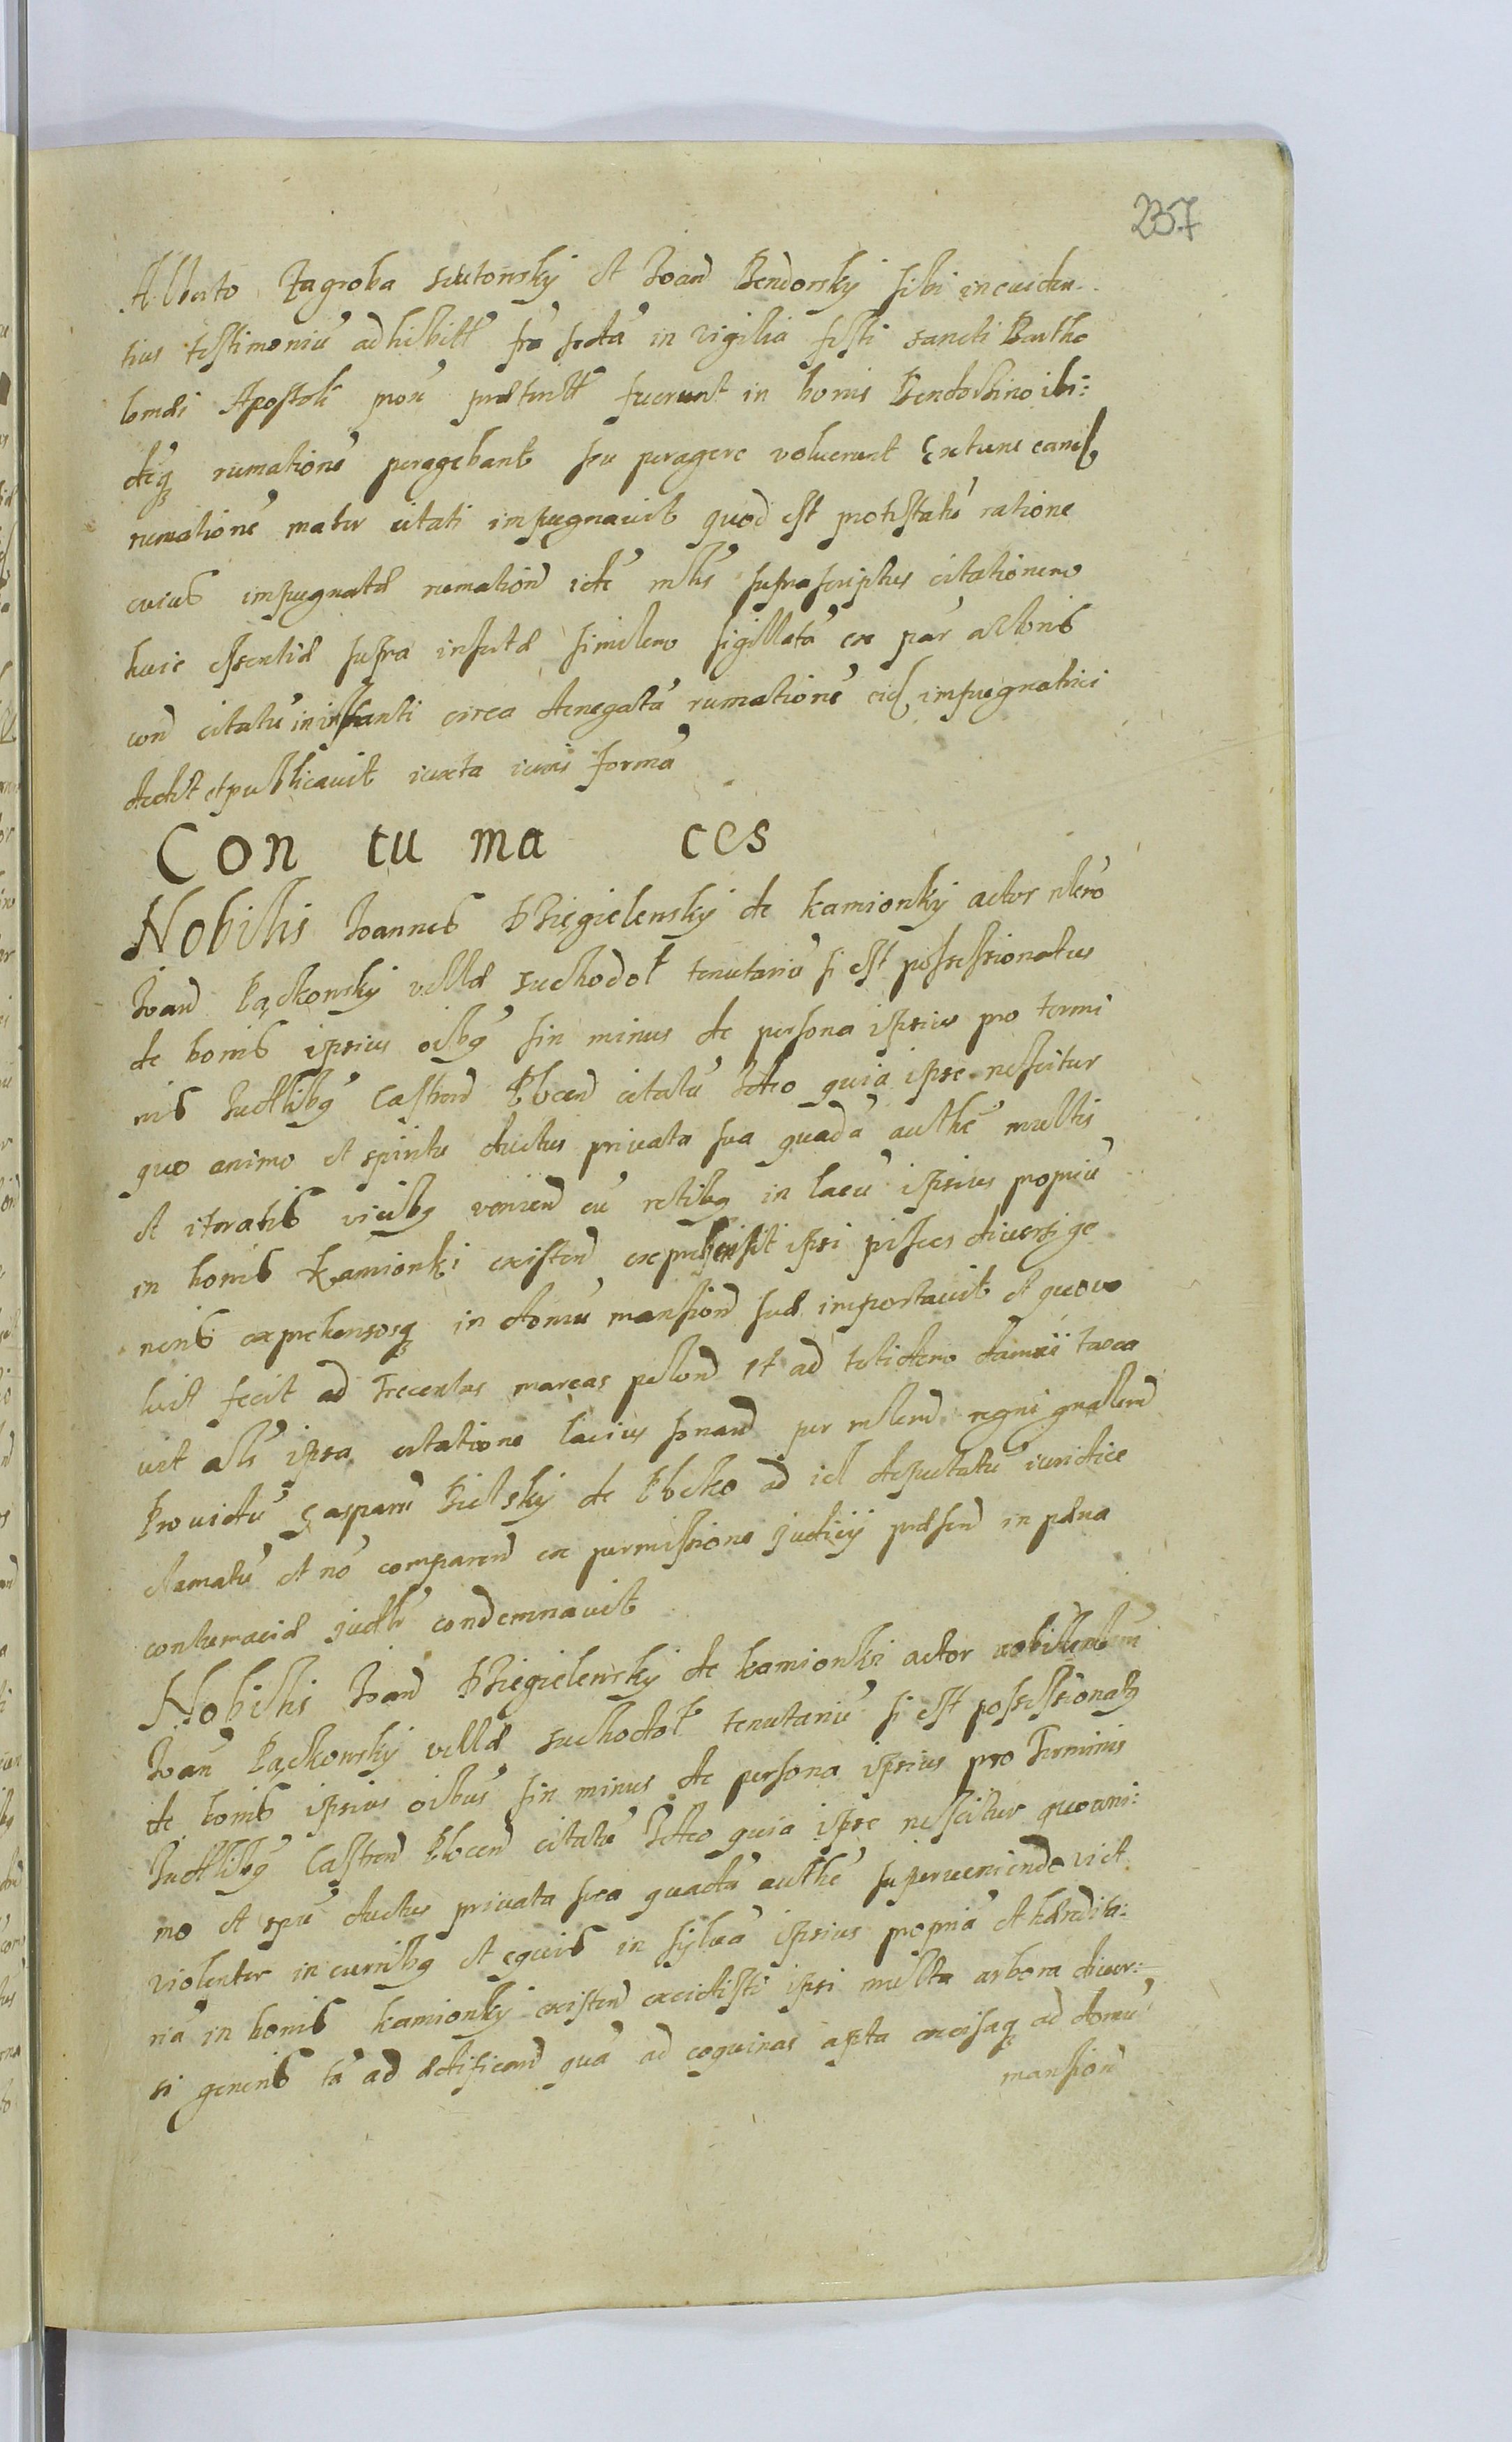 237
Alberto Zagroba sciutowskÿ et Joan̄ Bendorskÿ sibi in euiden-
tius testimoniū adhibitt̄ fr̄a sextā in vigilia festi sancti Bartho
lomæi Apostoli prox̄ præterit̄ fuerunt in bonis Bendorzino ibi:
deq̄ rumationē peragebant seu peragere voluerunt Extunc eand̄
rumationē mater citati impugnavit quod est protestatū ratione
cuius impugnatæ rumation̄ idē mltis suprascriptus citationem
huic essentiæ supra insertæ similem sigillatā ex par̄ actoris
con̄ citatū in instanti circa denegatā rumationē eid̄ impugnatrici
dedit et publicavit iuxta iuris formā
Con tu ma ces
Nobilis Joannes Dziegielenskÿ de Kamionkÿ actor nlem̄
Joan̄ Pączkowskÿ villæ suchodoł tenutariū si est possessionatus
de bonis ipsius oibq̄ sin minus de persona ipsius pro termi
nis Judtlibq̄ Castren̄ Plocen̄ citatū Ideo quia ipse nescitur
quo animo et spiritu ductus privata sua quadā authē multis
et iteratis vicibq̄ venien̄ cū retibq̄ in lacū ipsius propriū
in bonis Kamionki existen̄ exprehensit ipsi pisces diversi ge
neris exprehensosq̄ in domū mansion̄ suæ importavit et quo vo
luit fecit ad Trecentas marcas polon̄ Et ad totidem damni taxa
vit alŝ ipsa citatione lacius sonan̄ per mlem̄ regni gnalem̄
Providū Gasparū Bielskÿ de Plocko ad id deputatū iuridice
clamatū et nō comparen̄ ex permissione judicij præsen̄ in pæna
contumaciæ judtr̄ condemnavit
Nobilis Joan̄ Dziegielenskÿ de kamionki actor nobillem̄
Joan̄ Pączkowskÿ villæ suchodoł tenutariū si est possessionatq̄
de bonis ipsius oibus sin minus de persona ipsius pro Terminis
Judtlibq̄ Castren̄ Plocen̄ citatū Ideo quia ipse nescitur quo ani:
mo et spū ductus privata sua quadā authē superveniendo vid
violenter in curribq̄ et equis in sylvā ipsius propriā et hæredita:
riā in bonis kamionkÿ existen̄ excidisti ipsi multa arbora diver:
si generis tā ad ædifican̄ quā ad coquinas apta excisaq̄ ad domū
mansion̄